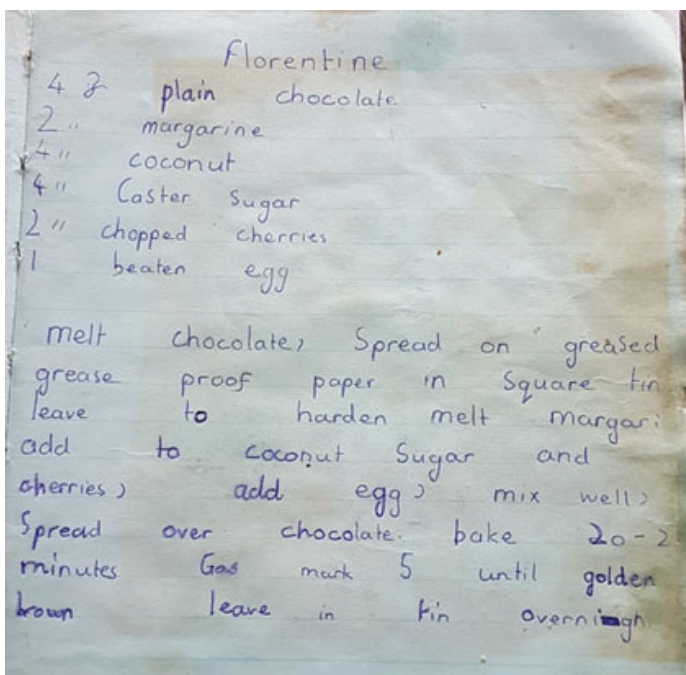 Florentine
4 oz plain chocolate
2 " margarine
4 " coconut
4 " Caster Sugar
2 " chopped cherries
1 beaten egg
melt chocolate, Spread on greased
grease proof paper in Square tin
leave to harden melt margari
add to coconut Sugar and
cherries, add egg, mix well,
Spread over chocolate. bake 20-2
minutes Gas mark 5 until golden
brown leave in tin overnigh